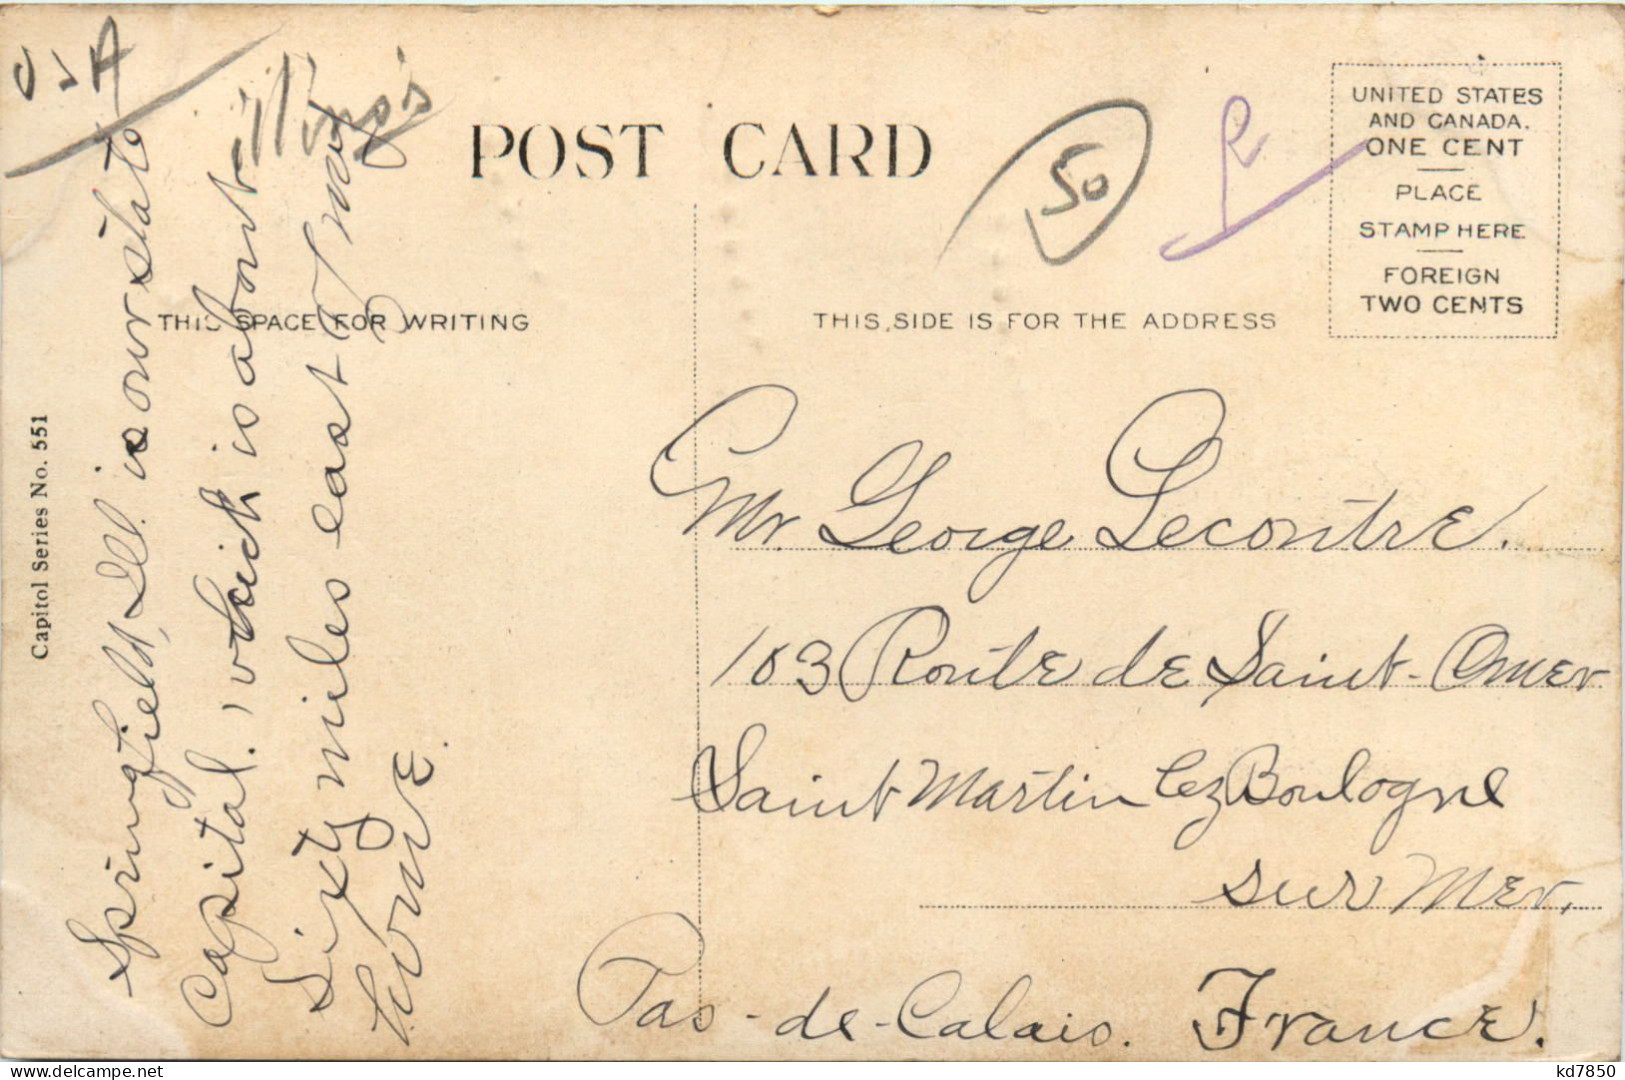 USA
illinois
POST CARD
50
UNITED STATES
AND CANADA.
ONE CENT
PLACE
STAMP HERE
FOREIGN
TWO CENTS
THIS SPACE FOR WRITING
THIS SIDE IS FOR THE ADDRESS
Capitol Series No. 551
Springfield, Ill. is our state
Capital, which is about
Sixty miles east of my
home.
Mr. George Lecontre.
103 Route de Saint-Omer
Saint Martin lez Boulogne
sur Mer.
Pas-de-Calais. France.
kd7850